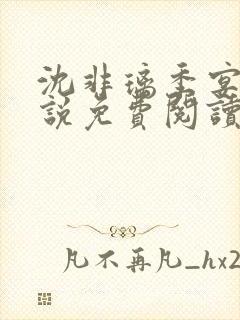 沈非璃季宴
說免費閱讀
凡不再凡_hx2